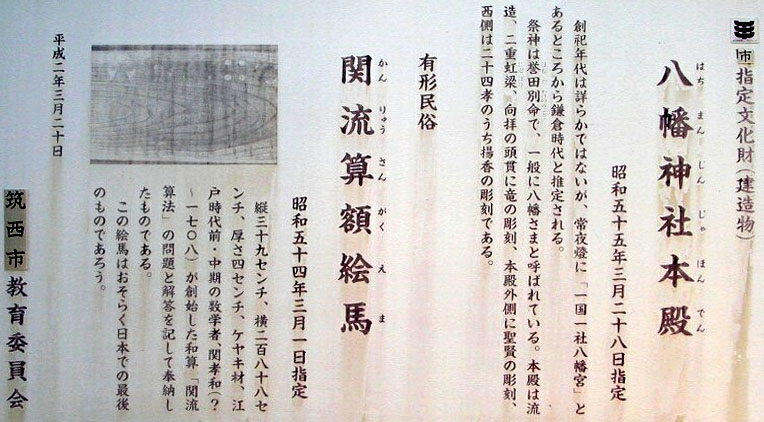 市指定文化財(建造物)
八幡神社本殿
はちまんじんじゃほんでん
昭和五十五年三月二十八日指定
創祀年代は詳らかではないが、常夜燈に「一国一社八幡宮」と
あるところから鎌倉時代と推定される。
祭神は誉田別命で、一般に八幡さまと呼ばれている。本殿は流
造、二重虹梁、向拝の頭貫に竜の彫刻、本殿外側に聖賢の彫刻、
西側は二十四孝のうち揚香の彫刻である。
有形民俗
関流算額絵馬
かんりゅうさんがくえま
昭和五十四年三月一日指定
縦三十九センチ、横二百八十八セ
ンチ、厚さ四センチ、ケヤキ材、江
戸時代前・中期の数学者、関孝和(?
~一七〇八)が創始した和算「関流
算法」の問題と解答を記して奉納し
たものである。
この絵馬はおそらく日本での最後
のものであろう。
平成二年三月二十日
筑西市教育委員会